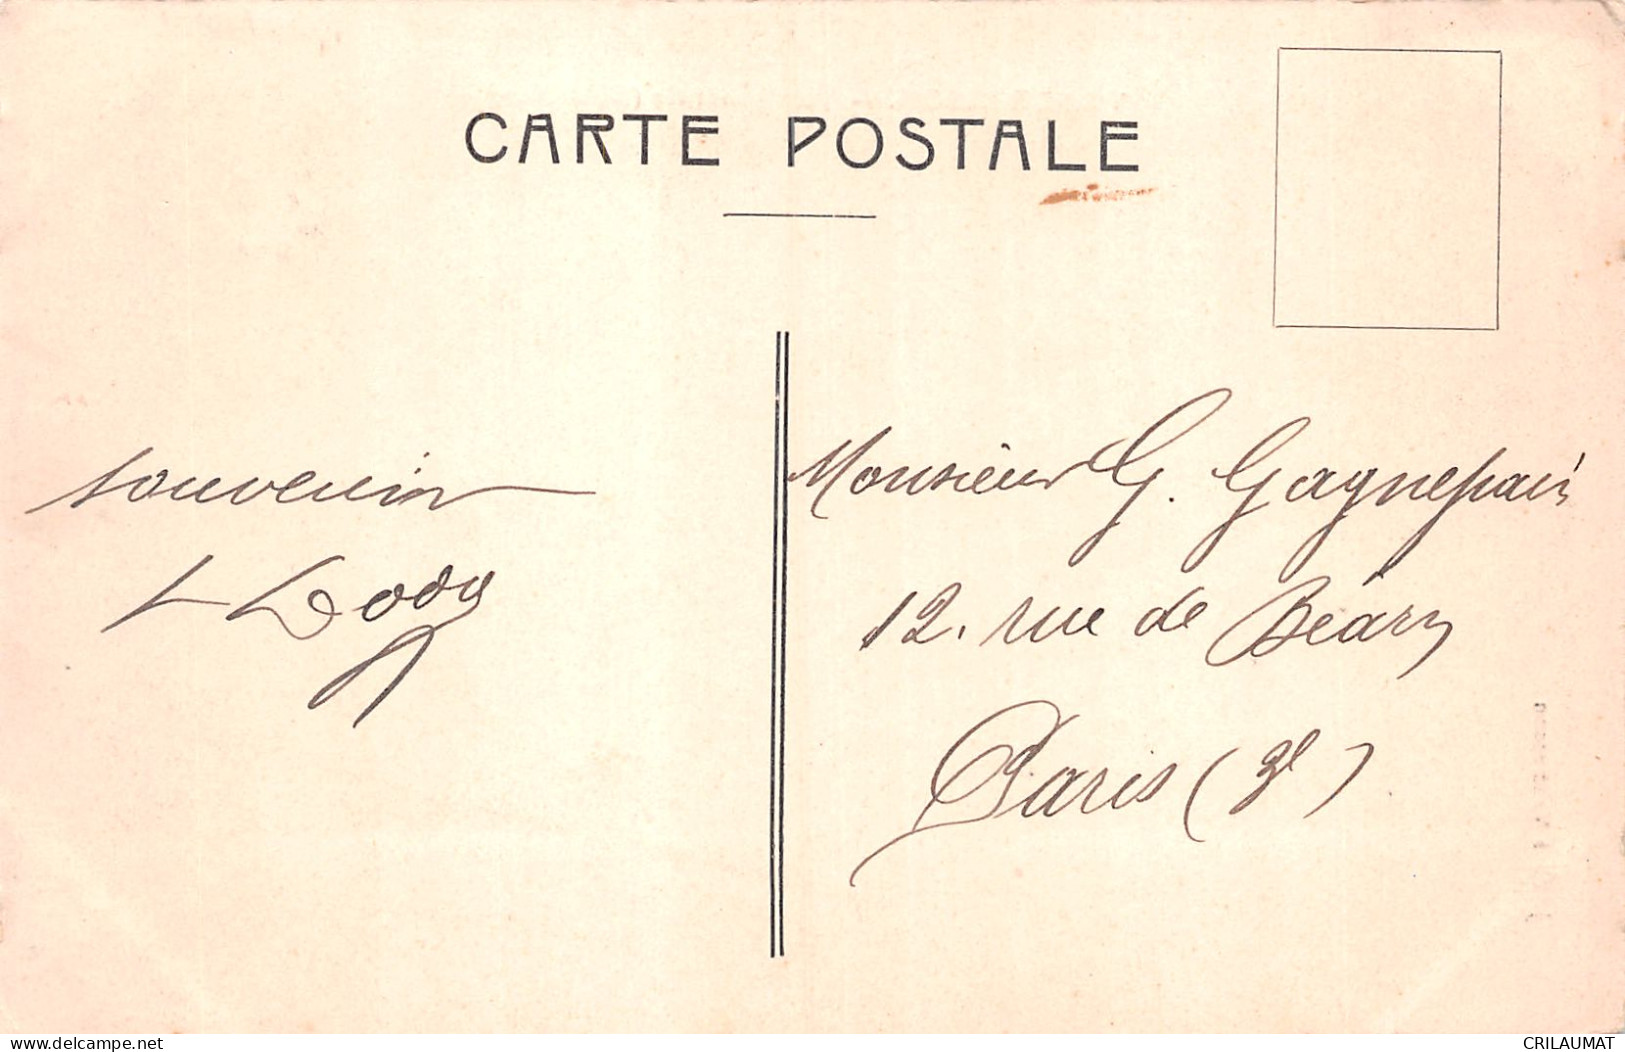 CARTE POSTALE
souvenir
Monsieur G. Gagnepain
12. rue de Béarn
Paris (3e)
delcampe.net
CRILAUMAT